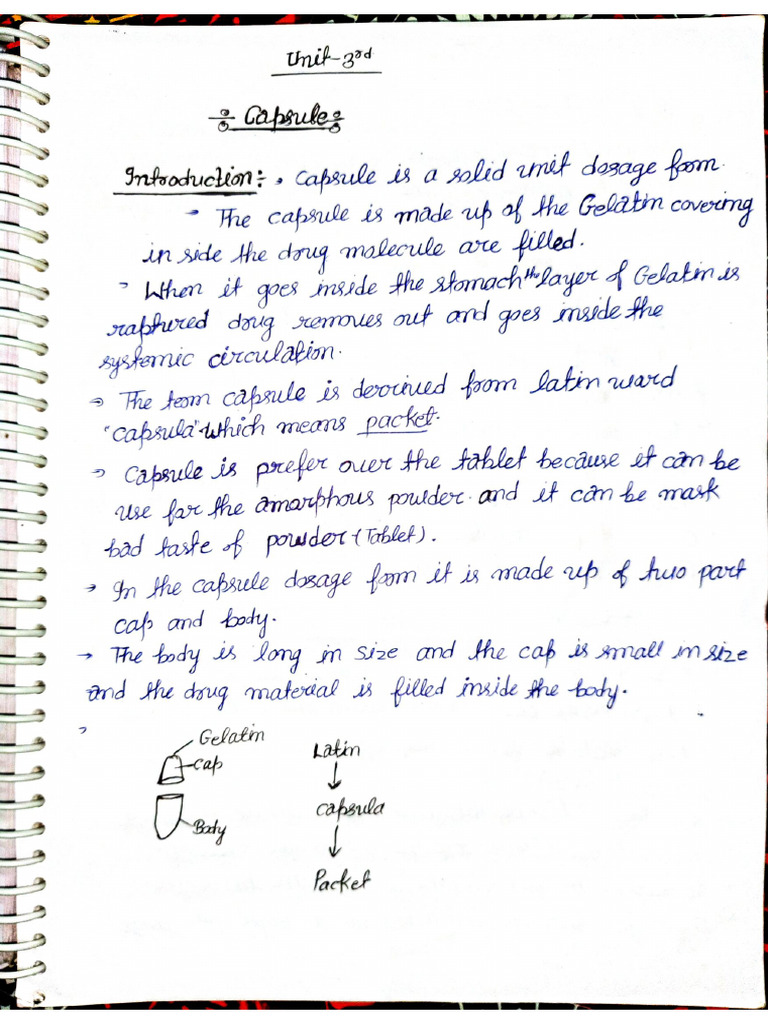 Unit-3rd
÷ Capsule ÷
Introduction:- → Capsule is a solid unit dosage form.
→ The capsule is made up of the Gelatin covering
in side the drug molecule are filled.
→ When it goes inside the stomach the layer of Gelatin is
raptured drug removes out and goes inside the
systemic circulation.
→ The term capsule is dervined from latin ward
"capsula" which means packet.
→ Capsule is prefer over the tablet because it can be
use for the amorphous powder and it can be mask
bad taste of powder (Tablet).
→ In the capsule dosage form it is made up of two part
cap and body.
→ The body is long in size and the cap is small in size
and the drug material is filled inside the body.
→
Gelatin
cap
Body
Latin
↓
capsula
↓
Packet